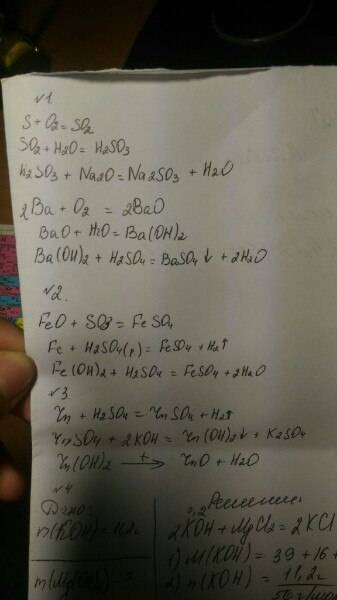 №1
S + O2 = SO2
SO2 + H2O = H2SO3
H2SO3 + Na2O = Na2SO3 + H2O
2Ba + O2 = 2BaO
BaO + H2O = Ba(OH)2
Ba(OH)2 + H2SO4 = BaSO4↓ + 2H2O
№2.
FeO + SO3 = FeSO4
Fe + H2SO4(р) = FeSO4 + H2↑
Fe(OH)2 + H2SO4 = FeSO4 + 2H2O
№3
Zn + H2SO4 = ZnSO4 + H2↑
ZnSO4 + 2KOH = Zn(OH)2↓ + K2SO4
Zn(OH)2 —t→ ZnO + H2O
№4
Дано:
m(KOH) = 11,2г
Решение:
2KOH + MgCl2 = 2KCl
1) M(KOH) = 39 + 16 +
2) n(KOH) = 11,2г